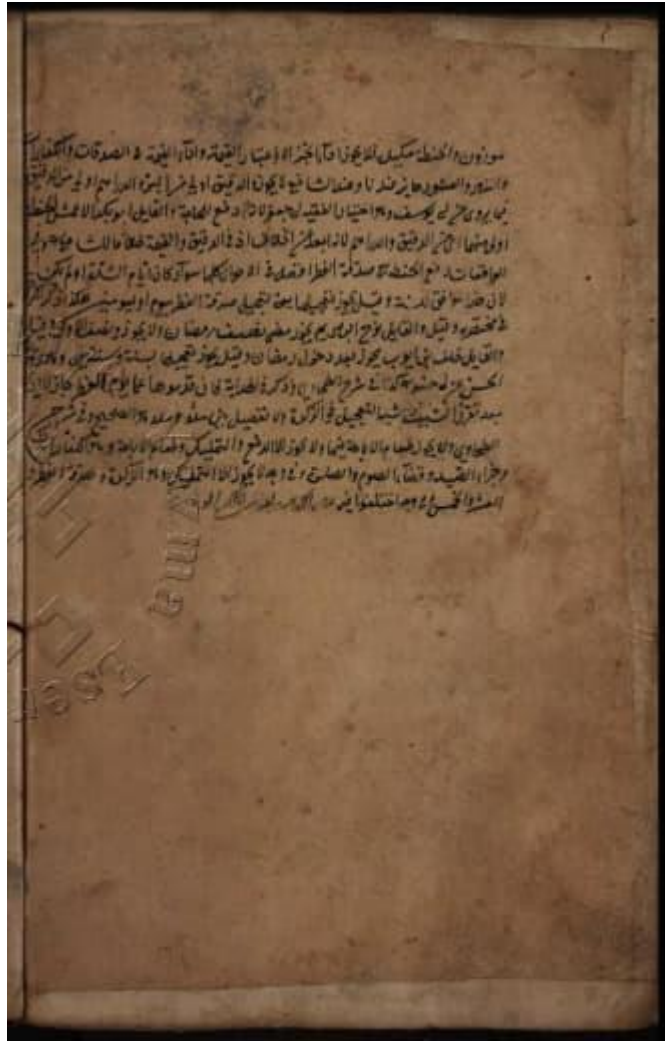 موزون والحنطة مكيل فلا يجوز اداء الخبز الا باعتبار القيمة واداء القيمة في الصدقات والكفارات
والنذور والعشور جائز عندنا وعند الشافعي لا يجوز الدقيق اولى من البر والدراهم اولى من الدقيق
فيما يروى عن ابي يوسف وهو اختيار الفقيه ابي جعفر لانه ادفع للحاجة والقائل ابو بكر الاعمش الحنطة
اولى منهما اي من الدقيق والدراهم لانه ابعد من الخلاف اذ في الدقيق والقيمة خلاف
الواقعات دفع الحنطة في صدقة الفطر افضل في الاحوال كلها سواء كان ايام الشدة او لم يكن
لان هذا موافق للسنة وقيل يجوز تعجيلها يعني تعجيل صدقة الفطر بيوم او بيومين هكذا ذكر الكرخي
في مختصره وقيل والقائل نوح بن ابي مريم يجوز بمضي نصف رمضان ولا يجوز قبله وقيل
والقائل خلف بن ايوب يجوز بعد دخول رمضان وقيل يجوز تعجيل بسنة وسنتين
الحسن عن ابي حنيفة كذا في شرح الطحاوي وذكر في الهداية فان قدموها على يوم الفطر جاز لانه
بعد تقرر السبب فاشبه التعجيل في الزكوة ولا تفصيل بين مدة ومدة هو الصحيح وفي شرح
الطحاوي والذي دفعها بالاباحة فيها ولا يجوز الا الدفع والتمليك وطعام الاباحة
وجزاء الصيد وقضاء الصوم والصلوة وفي وجه لا يجوز الا التمليك وهو الزكوة وصدقة الفطر
العشر والخمس وفي وجه اختلفوا فيه